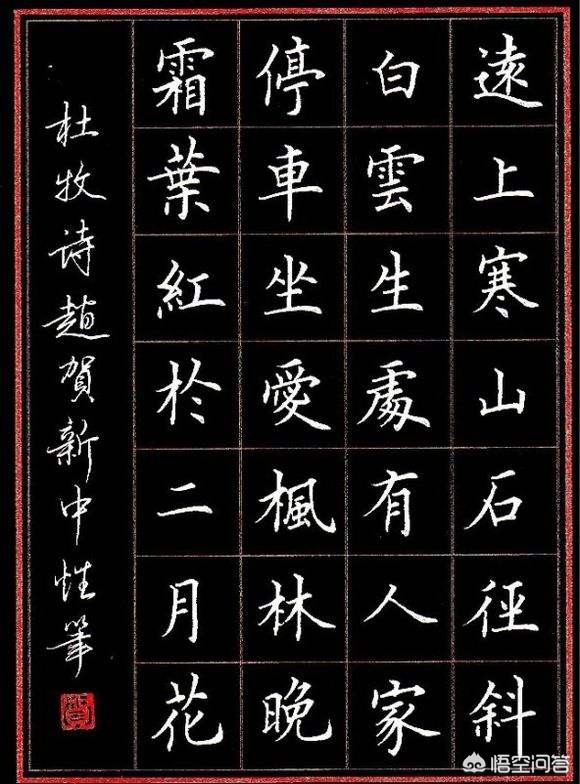 遠上寒山石徑斜
白雲生處有人家
停車坐愛楓林晚
霜葉紅於二月花
杜牧诗趙賀新中性筆
賀
悟空问答